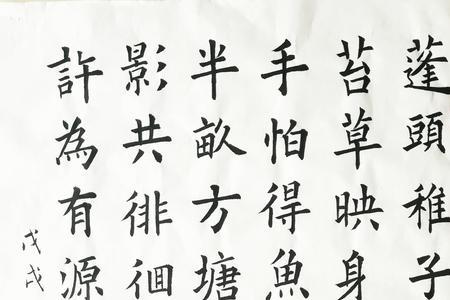 蓬頭稚子
苔草映身
手怕得魚
半畝方塘
影共徘徊
許為有源
戊戌